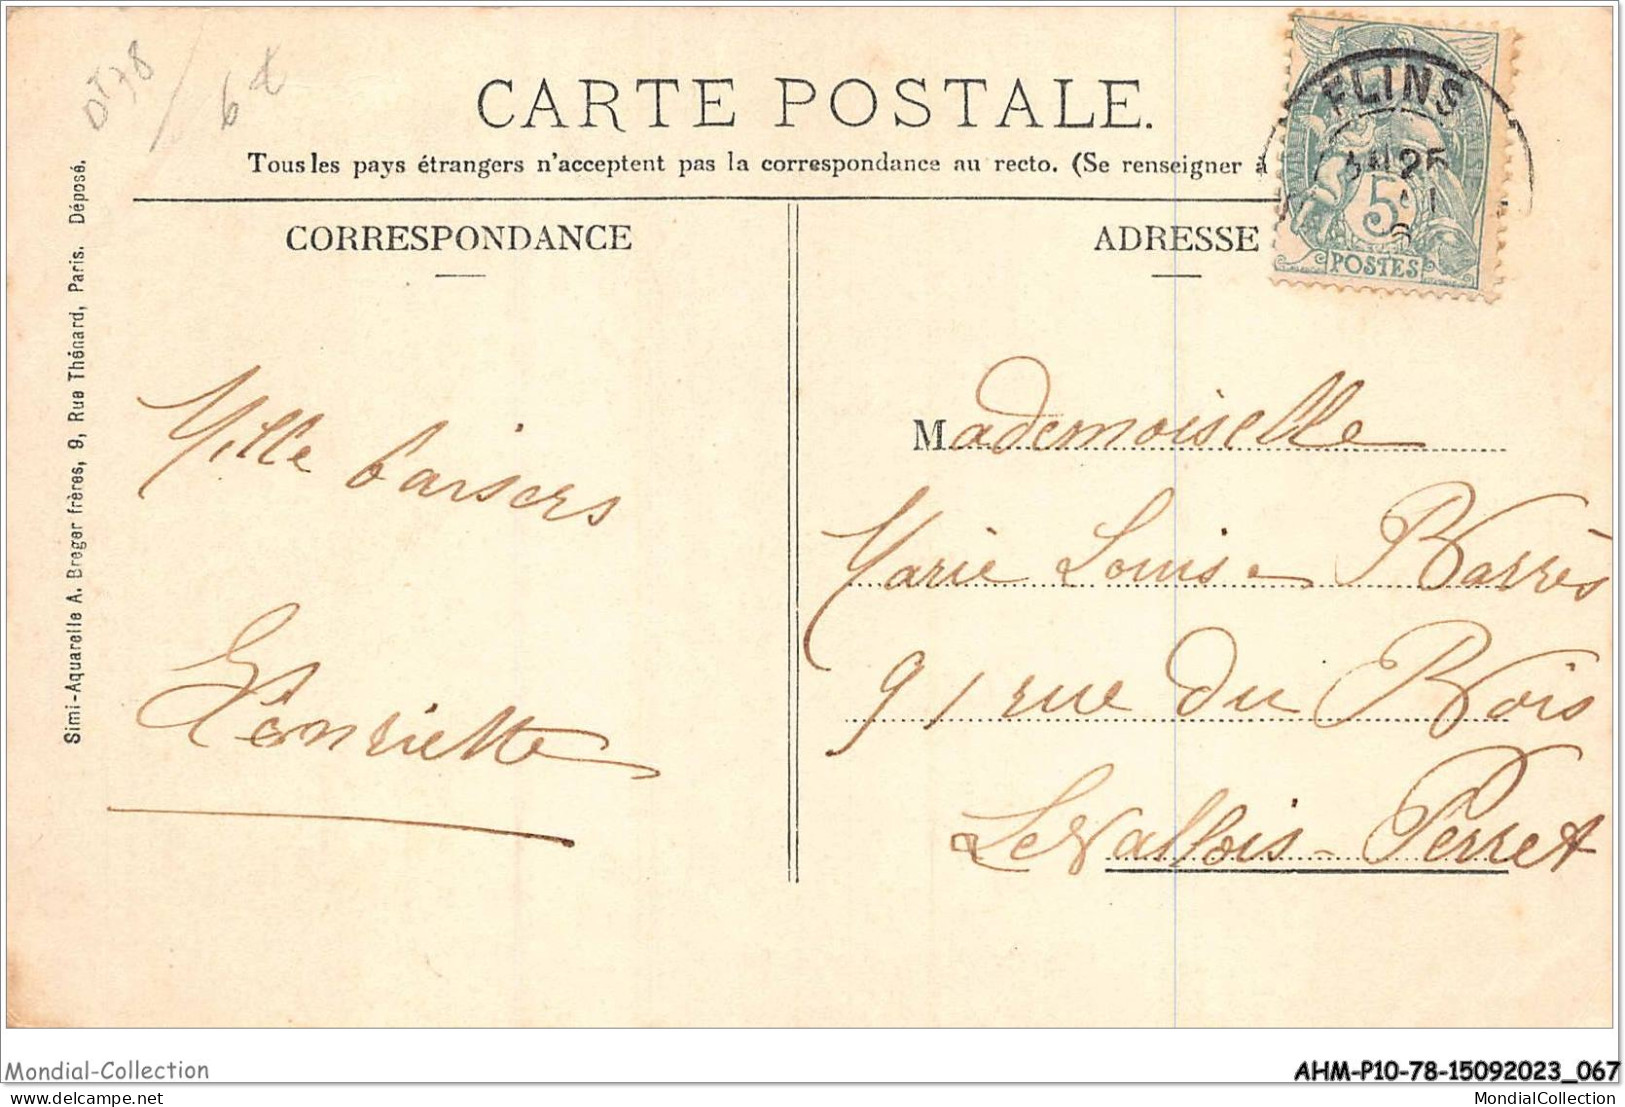 DT78
6€
CARTE POSTALE.
Tous les pays étrangers n'acceptent pas la correspondance au recto. (Se renseigner à
CORRESPONDANCE
ADRESSE
FLINS
25
5
POSTES
Simi-Aquarelle A. Breger frères, 9, Rue Thénard, Paris. Déposé.
Mille baisers
Henriette
Mademoiselle
Marie Louise Barrès
91 rue du Bois
Levallois-Perret
Mondial-Collection
AHM-P10-78-15092023_067
delcampe.net
MondialCollection